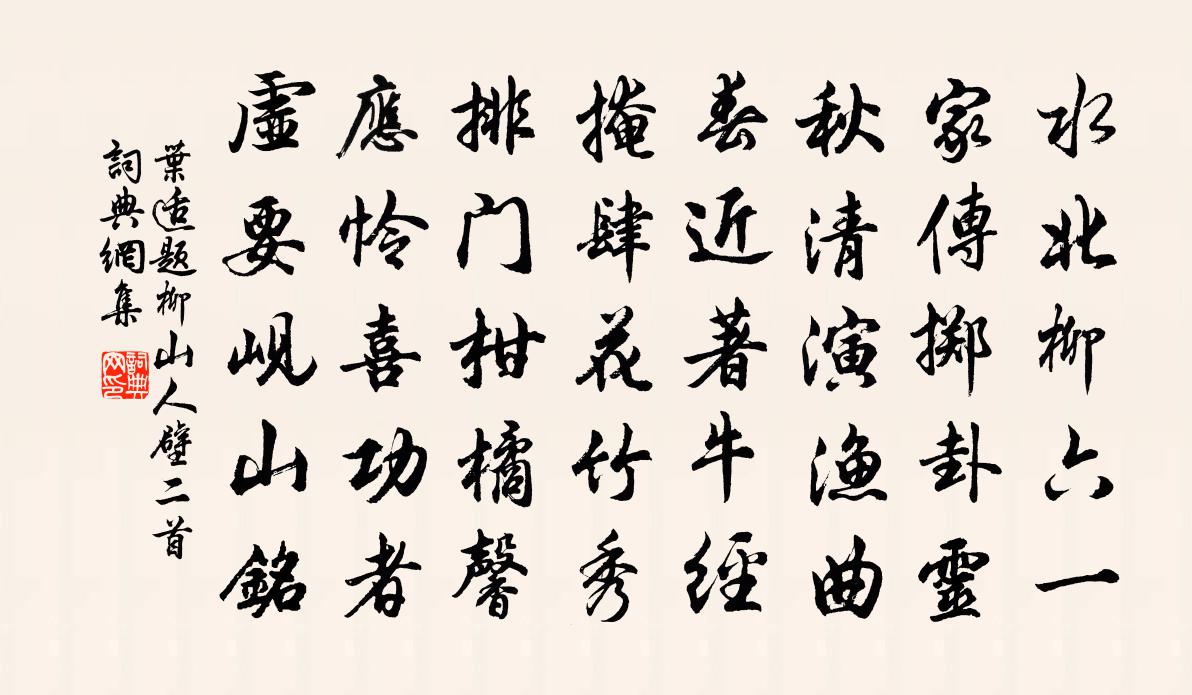 水北柳六一
家傳掷卦靈
秋清演漁曲
春近著牛經
掩肆花竹秀
排门柑橘馨
應怜喜功者
虛要峴山銘
葉适题柳山人壁二首
詞典網集
詞典网印